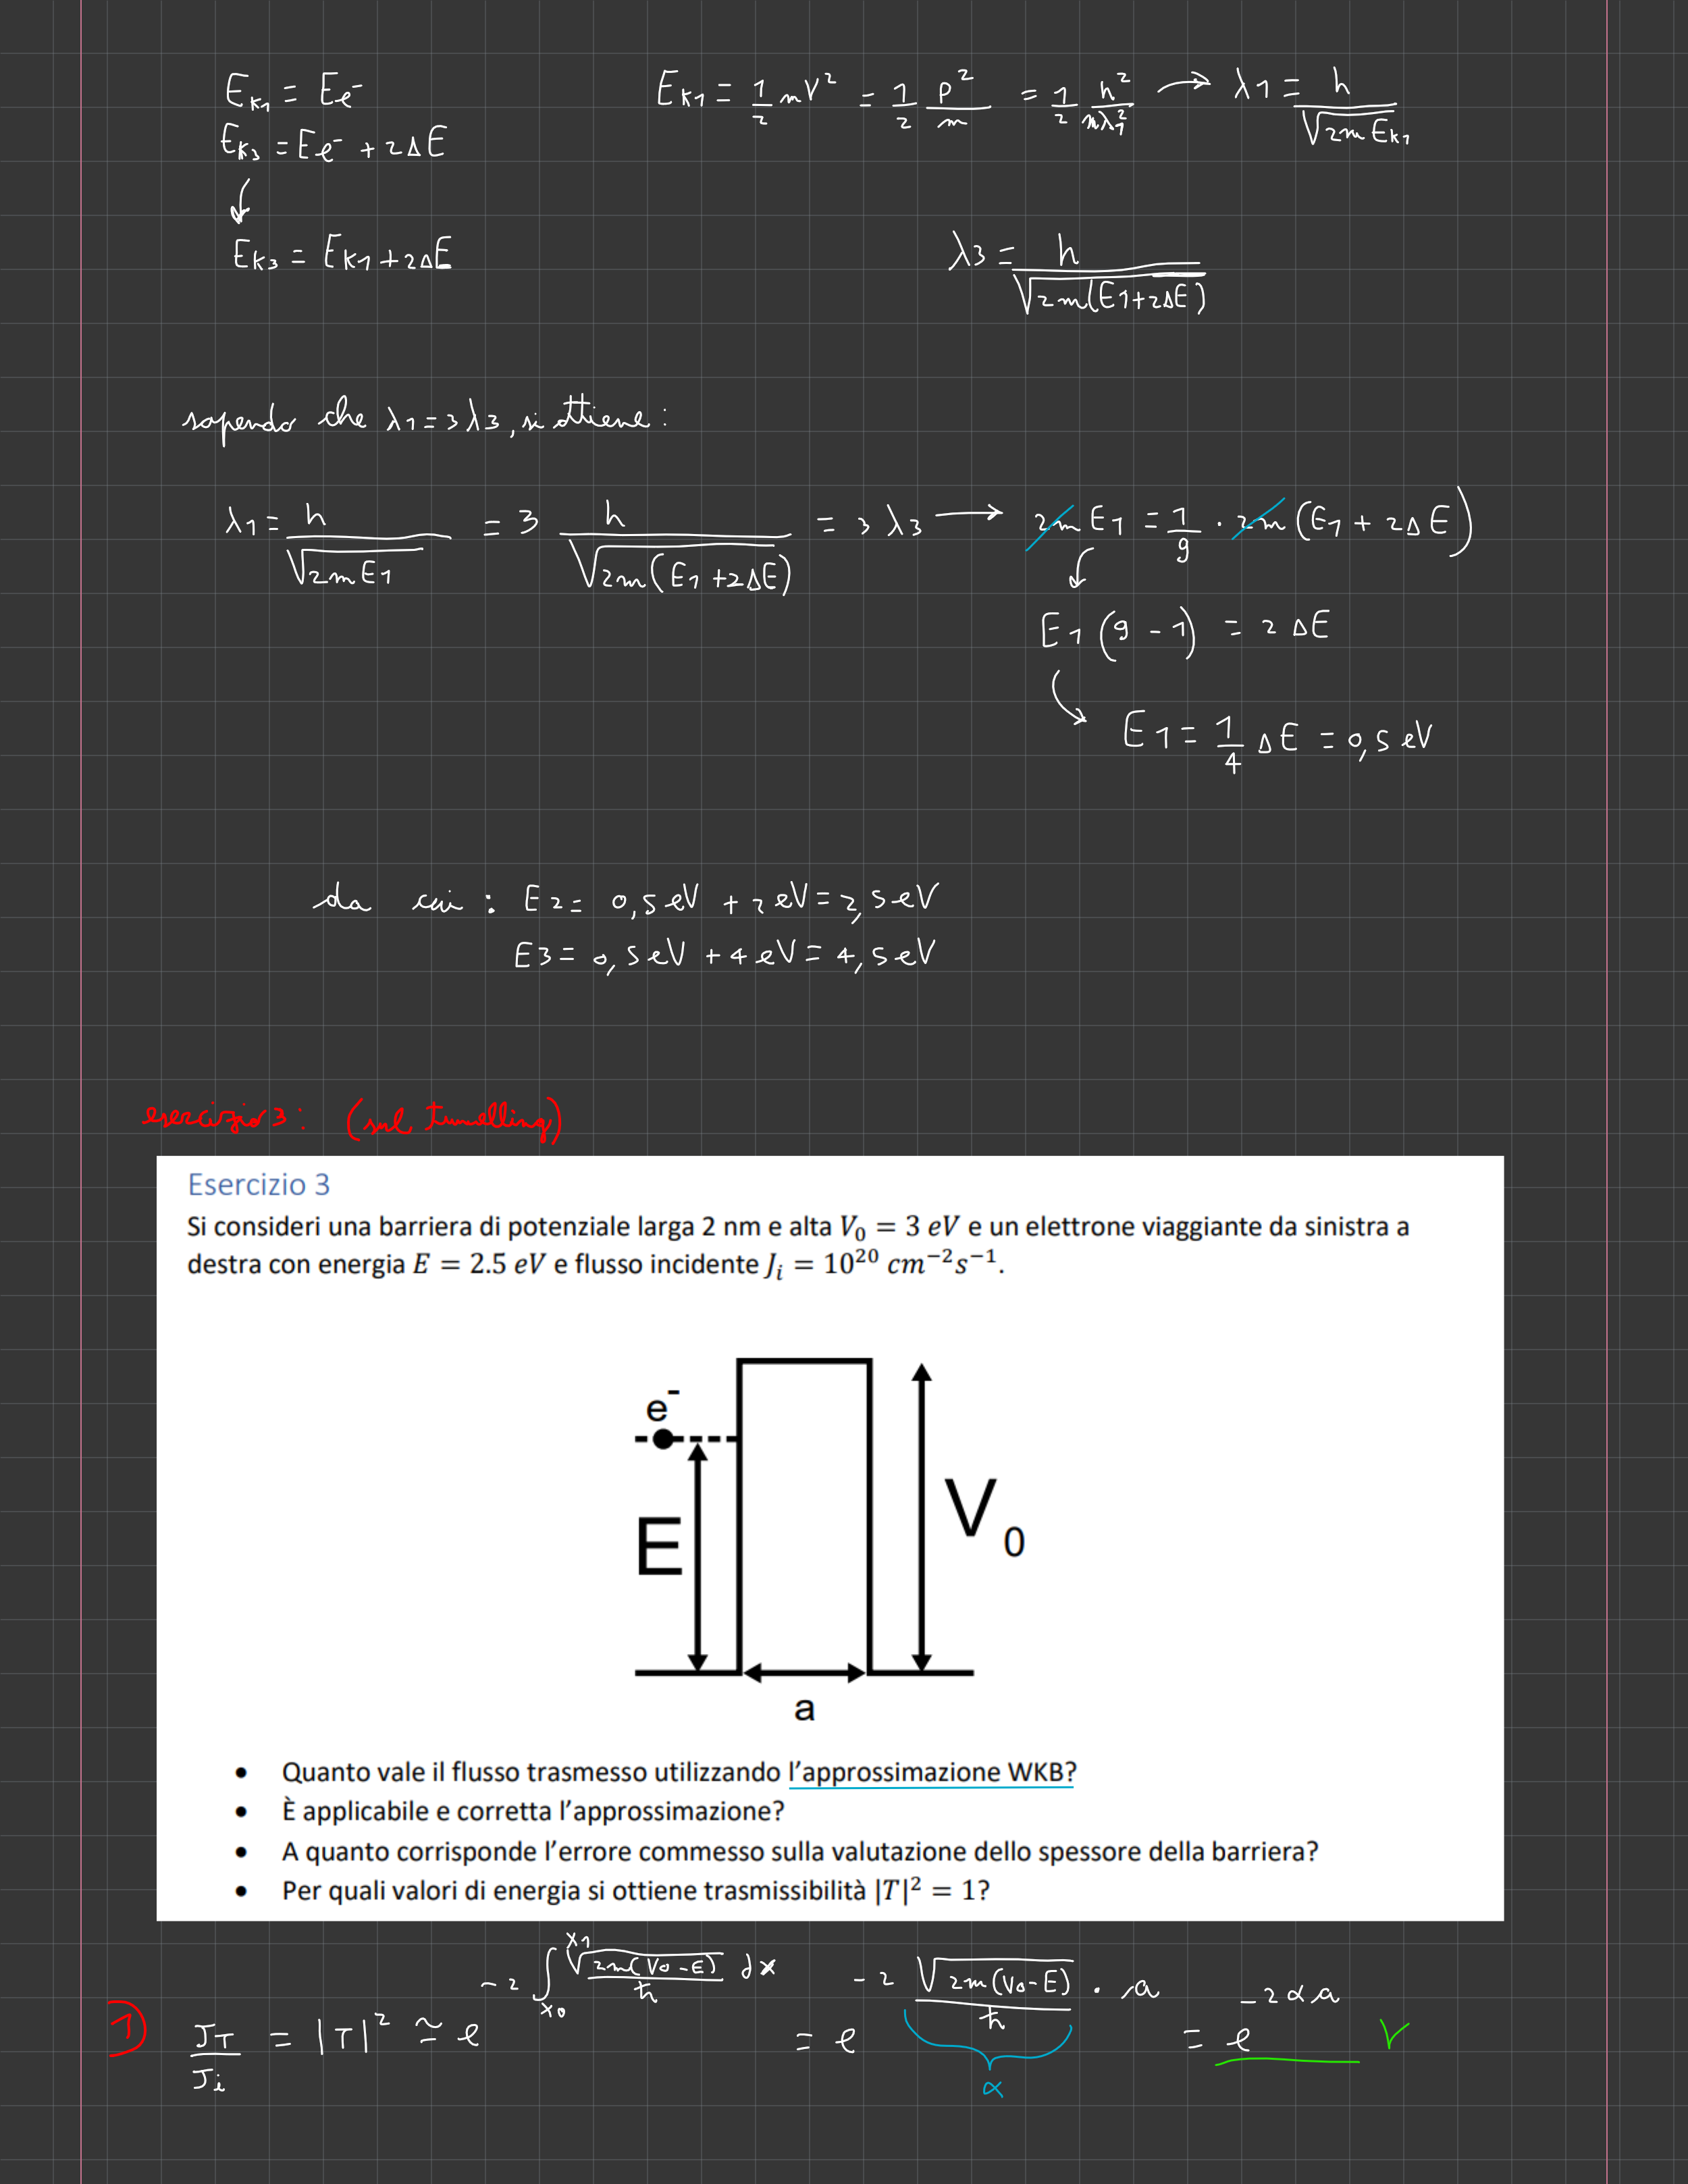 E_{K1} = E_{e^-}
E_{K1} = 1/2 mV^2 = 1/2 p^2/m = 1/2 h^2/mλ_1^2 → λ1 = h/√(2m E_{K1})
E_{K3} = E_{e^-} + 2ΔE
↓
E_{K3} = E_{K1} + 2ΔE
λ3 = h/√(2m(E1+2ΔE))
sapendo che λ1 = 3λ3, si ottiene:
λ1 = h/√(2mE1) = 3 h/√(2m(E1+2ΔE)) = 3λ3 → 2m E1 = 1/9 · 2m (E1 + 2ΔE)
E1 (9 - 1) = 2ΔE
E1 = 1/4 ΔE = 0,5 eV
da cui : E2 = 0,5 eV + 2 eV = 2,5 eV
E3 = 0,5 eV + 4 eV = 4,5 eV
esercizio 3: (sul tunnelling)
Esercizio 3
Si consideri una barriera di potenziale larga 2 nm e alta V_0 = 3 eV e un elettrone viaggiante da sinistra a
destra con energia E = 2.5 eV e flusso incidente J_i = 10^{20} cm^{-2}s^{-1}.
e^-
E
V_0
a
• Quanto vale il flusso trasmesso utilizzando l'approssimazione WKB?
• È applicabile e corretta l'approssimazione?
• A quanto corrisponde l'errore commesso sulla valutazione dello spessore della barriera?
• Per quali valori di energia si ottiene trasmissibilità |T|^2 = 1?
1) J_T/J_i = |T|^2 ≃ e^{-2 ∫_{x0}^{x1} √(2m(V0-E))/ħ dx} = e^{-2 √(2m(V0-E))/ħ · a} = e^{-2αa} ✓
α